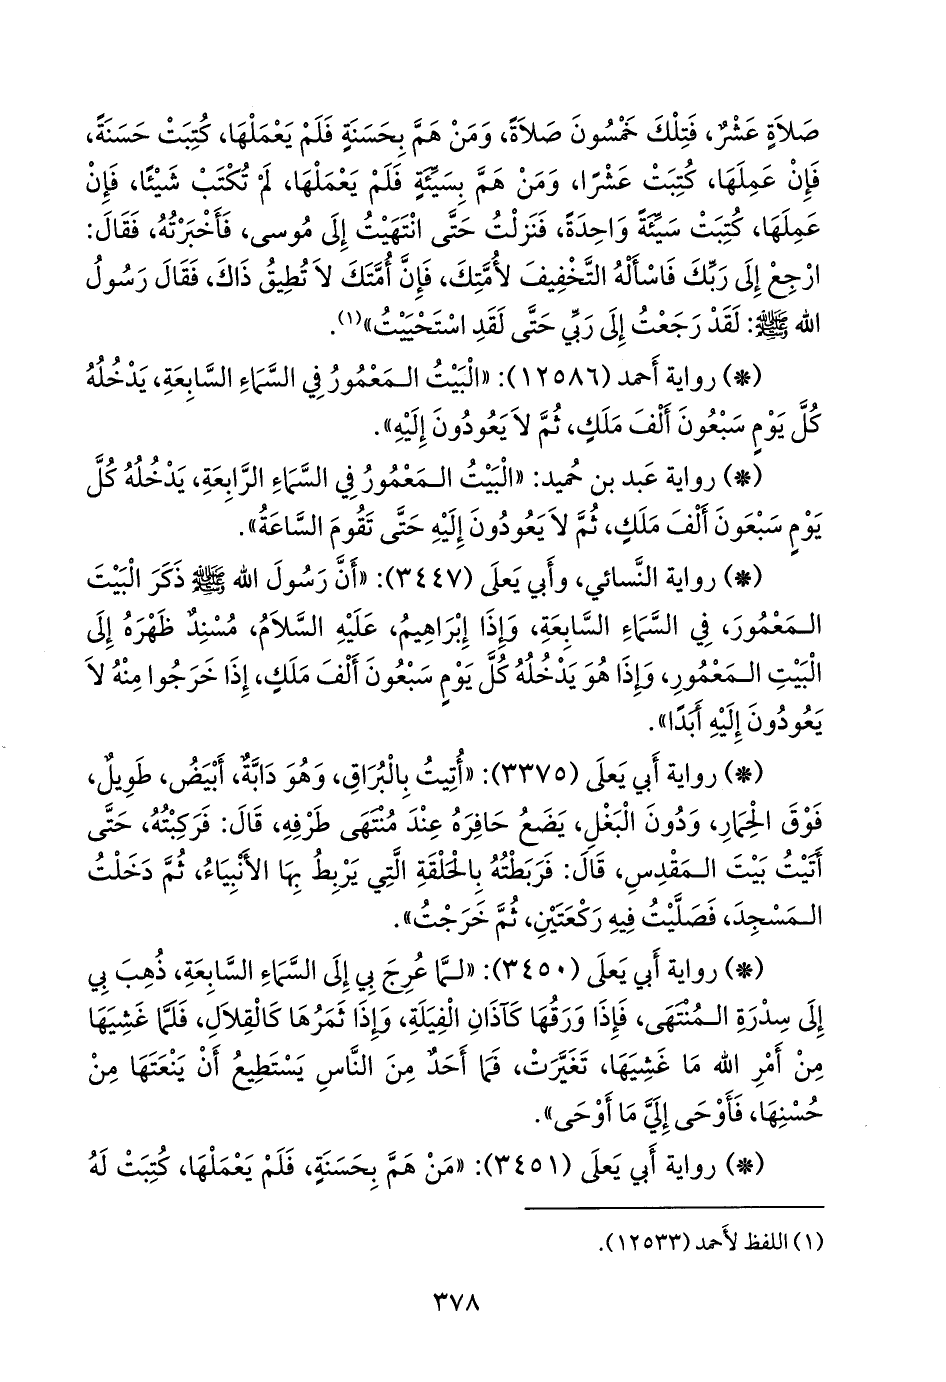 صَلاَةٍ عَشْرٌ، فَتِلْكَ خَمْسُونَ صَلاَةً، وَمَنْ هَمَّ بِحَسَنَةٍ فَلَمْ يَعْمَلْهَا، كُتِبَتْ حَسَنَةً،
فَإِنْ عَمِلَهَا، كُتِبَتْ عَشْرًا، وَمَنْ هَمَّ بِسَيِّئَةٍ فَلَمْ يَعْمَلْهَا، لَمْ تُكْتَبْ شَيْئًا، فَإِنْ
عَمِلَهَا، كُتِبَتْ سَيِّئَةً وَاحِدَةً، فَنَزَلْتُ حَتَّى انْتَهَيْتُ إِلَى مُوسى، فَأَخْبَرْتُهُ، فَقَالَ:
ارْجِعْ إِلَى رَبِّكَ فَاسْأَلْهُ التَّخْفِيفَ لأُمَّتِكَ، فَإِنَّ أُمَّتَكَ لاَ تُطِيقُ ذَاكَ، فَقَالَ رَسُولُ
الله ﷺ: لَقَدْ رَجَعْتُ إِلَى رَبِّي حَتَّى لَقَدِ اسْتَحْيَيْتُ»(١).
(*) رواية أَحمد (١٢٥٨٦): «الْبَيْتُ الـمَعْمُورُ فِي السَّمَاءِ السَّابِعَةِ، يَدْخُلُهُ
كُلَّ يَوْمٍ سَبْعُونَ أَلْفَ مَلَكٍ، ثُمَّ لاَ يَعُودُونَ إِلَيْهِ».
(*) رواية عَبد بن حُميد: «الْبَيْتُ الـمَعْمُورُ فِي السَّمَاءِ الرَّابِعَةِ، يَدْخُلُهُ كُلَّ
يَوْمٍ سَبْعَونَ أَلْفَ مَلَكٍ، ثُمَّ لاَ يَعُودُونَ إِلَيْهِ حَتَّى تَقُومَ السَّاعَةُ».
(*) رواية النَّسائي، وأَبي يَعلَى (٣٤٤٧): «أَنَّ رَسُولَ الله ﷺ ذَكَرَ الْبَيْتَ
الـمَعْمُورَ، فِي السَّمَاءِ السَّابِعَةِ، وَإِذَا إِبْرَاهِيمُ، عَلَيْهِ السَّلاَمُ، مُسْنِدٌ ظَهْرَهُ إِلَى
الْبَيْتِ الـمَعْمُورِ، وَإِذَا هُوَ يَدْخُلُهُ كُلَّ يَوْمٍ سَبْعُونَ أَلْفَ مَلَكٍ، إِذَا خَرَجُوا مِنْهُ لاَ
يَعُودُونَ إِلَيْهِ أَبَدًا».
(*) رواية أَبي يَعلَى (٣٣٧٥): «أُتِيتُ بِالْبُرَاقِ، وَهُوَ دَابَّةٌ، أَبْيَضُ، طَوِيلٌ،
فَوْقَ الْحِمَارِ، وَدُونَ الْبَغْلِ، يَضَعُ حَافِرَهُ عِنْدَ مُنْتَهَى طَرْفِهِ، قَالَ: فَرَكِبْتُهُ، حَتَّى
أَتَيْتُ بَيْتَ الـمَقْدِسِ، قَالَ: فَرَبَطْتُهُ بِالْحَلْقَةِ الَّتِي يَرْبِطُ بِهَا الأَنْبِيَاءُ، ثُمَّ دَخَلْتُ
الـمَسْجِدَ، فَصَلَّيْتُ فِيهِ رَكْعَتَيْنِ، ثُمَّ خَرَجْتُ».
(*) رواية أَبي يَعلَى (٣٤٥٠): «لـمَّا عُرِجَ بِي إِلَى السَّمَاءِ السَّابِعَةِ، ذُهِبَ بِي
إِلَى سِدْرَةِ الـمُنْتَهَى، فَإِذَا وَرَقُهَا كَآذَانِ الْفِيَلَةِ، وَإِذَا ثَمَرُهَا كَالْقِلاَلِ، فَلَمَّا غَشِيَهَا
مِنْ أَمْرِ الله مَا غَشِيَهَا، تَغَيَّرَتْ، فَمَا أَحَدٌ مِنَ النَّاسِ يَسْتَطِيعُ أَنْ يَنْعَتَهَا مِنْ
حُسْنِهَا، فَأَوْحَى إِلَيَّ مَا أَوْحَى».
(*) رواية أَبي يَعلَى (٣٤٥١): «مَنْ هَمَّ بِحَسَنَةٍ، فَلَمْ يَعْمَلْهَا، كُتِبَتْ لَهُ
(١) اللفظ لأَحمد (١٢٥٣٣).
٣٧٨